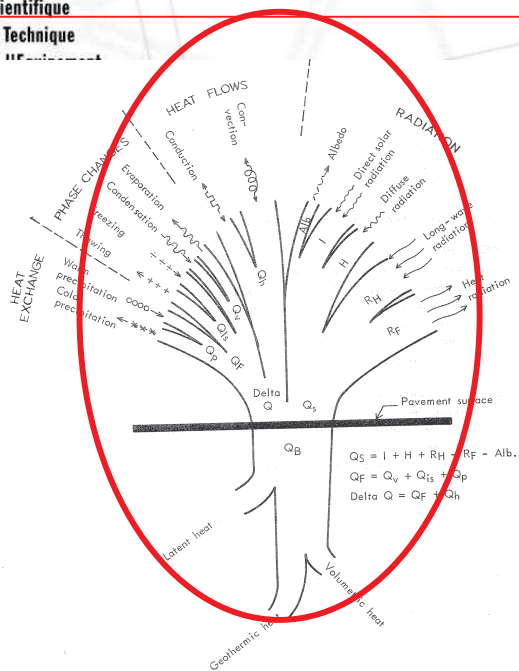 entifique
Technique
HEAT FLOWS
Con-
vection
Conduction
PHASE CHANGES
Evaporation
Condensation
Freezing
Thawing
HEAT
EXCHANGE
Warm
precipitation
Cold
precipitation
RADIATION
Albedo
Direct solar
radiation
Diffuse
radiation
Long-wave
radiation
Heat
radiation
Alb.
I
H
RH
RF
Qh
Qv
Qis
QF
Qp
Delta
Q
Qs
Pavement surface
QB
QS = I + H + RH - RF - Alb.
QF = Qv + Qis + Qp
Delta Q = QF + Qh
Latent heat
Volumetric heat
Geothermic heat